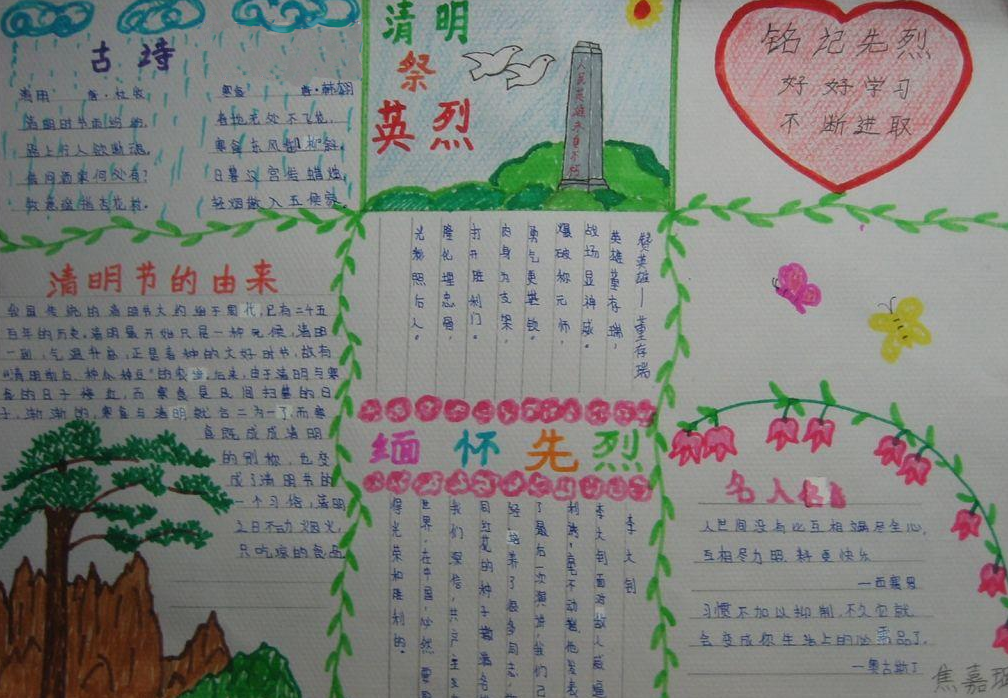 古诗
清明 唐·杜牧
清明时节雨纷纷,
路上行人欲断魂。
借问酒家何处有?
牧童遥指杏花村。
寒食 唐·韩翃
春城无处不飞花,
寒食东风御柳斜。
日暮汉宫传蜡烛,
轻烟散入五侯家。
清明
祭
英烈
人民英雄永垂不朽
铭记先烈
好好学习
不断进取
清明节的由来
我国传统的清明节大约始于周代,已有二千五
百年的历史。清明最开始只是一种节候,清明
一到,气温升高,正是春种的大好时节,故有
“清明前后,种瓜种豆”的农谚。后来,由于清明与寒
食的日子接近,而寒食是民间扫墓的日
子,渐渐的,寒食与清明就合二为一了,而寒
食既成成清明
的别称,也变
成了清明节的
一个习俗,清明
之日不动烟火,
只吃凉的食品
赞英雄——董存瑞
英雄董存瑞,
战场显神威。
爆破称元帅,
勇气更堪钦。
肉身为支架,
打开胜利门。
隆化埋忠骨,
光辉照后人。
缅怀先烈
李大钊
李大钊面对敌人威逼
利诱,毫不动摇,他发表
了最后一次演讲:我们已
经培养了很多同志,
红花的种子撒遍各
我们深信,共产主义
世界,在中国,必然要
得光荣和胜利的。
名人
人世间没有比互相竭尽全心,
互相尽力照料更快乐
——西塞罗
习惯不加以抑制,不久它就
会变成你生活上的必需品了。
——奥古斯丁
焦嘉